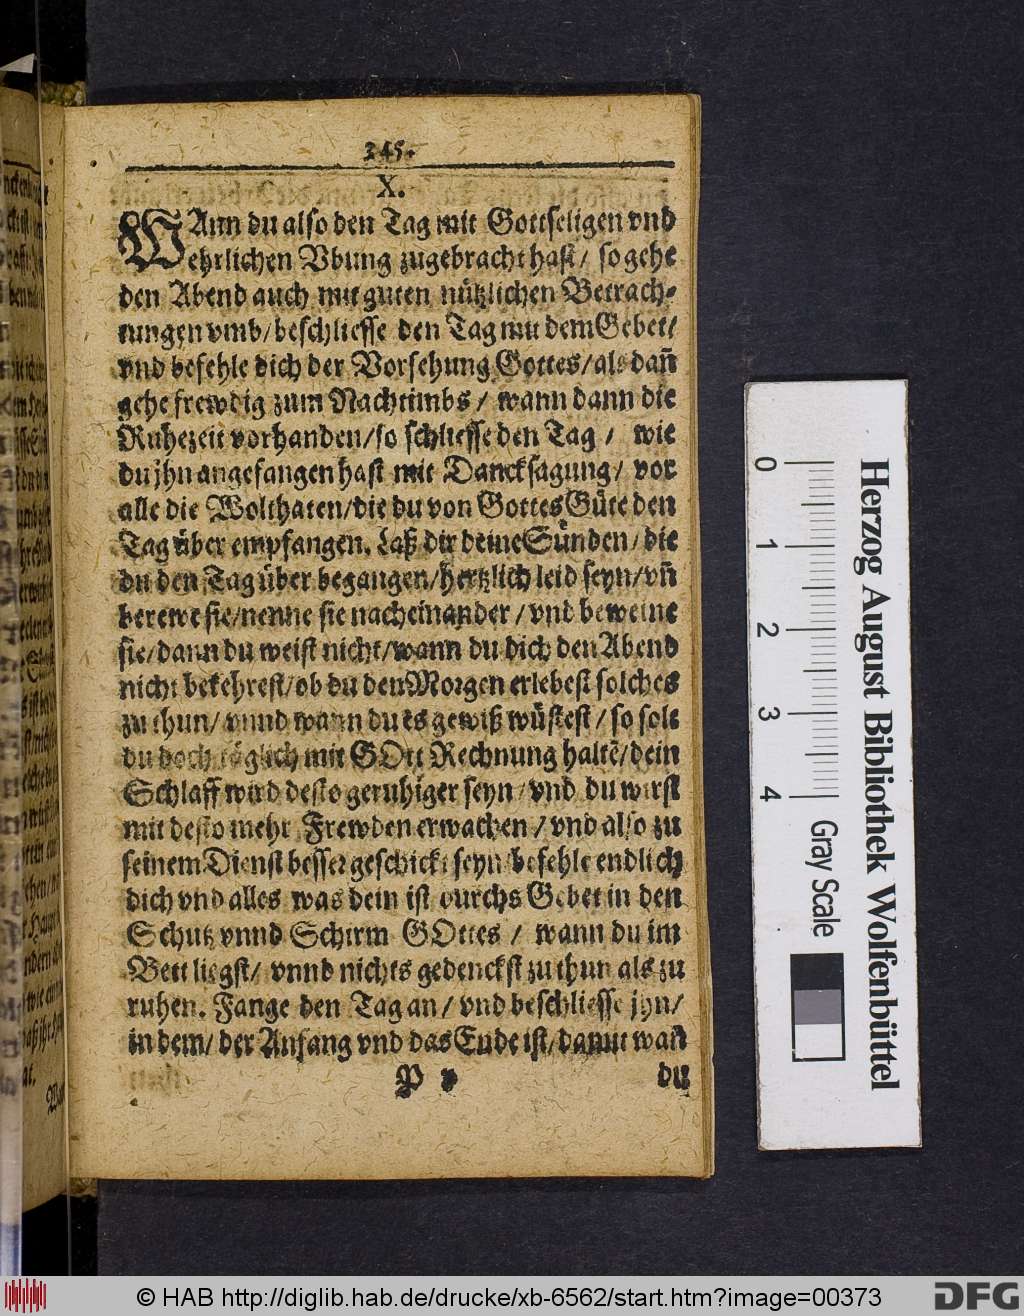 345.
X.
WAnn du also den Tag mit Gottseligen vnd
ehrlichen Vbung zugebracht hast / so gehe
den Abend auch mit guten nützlichen Betrach-
tungen vmb / beschliesse den Tag mit dem Gebet /
vnd befehle dich der Vorsehung Gottes / als dañ
gehe frewdig zum Nachtimbs / wann dann die
Ruhezeit vorhanden / so schliesse den Tag / wie
du jhn angefangen hast mit Dancksagung / vor
alle die Wolthaten / die du von Gottes Güte den
Tag über empfangen. Laß dir deine Sünden / die
du den Tag über begangen / hertzlich leid seyn / vñ
berewe sie / nenne sie nacheinander / vnd beweine
sie / dann du weist nicht / wann du dich den Abend
nicht bekehrest / ob du den Morgen erlebest solches
zu thun / vnnd wann du es gewiß wüstest / so solt
du doch täglich mit GOtt Rechnung haltẽ / dein
Schlaff wird desto geruhiger seyn / vnd du wirst
mit desto mehr Frewden erwachen / vnd also zu
seinem Dienst besser geschickt seyn / befehle endlich
dich vnd alles was dein ist durchs Gebet in den
Schutz vnnd Schirm GOttes / wann du im
Bett liegst / vnnd nichts gedenckst zu thun als zu
ruhen. Fange den Tag an / vnd beschliesse jhn /
in dem / der Anfang vnd das Ende ist / damit wañ
P v du
Herzog August Bibliothek Wolfenbüttel
0 1 2 3 4
Gray Scale
© HAB http://diglib.hab.de/drucke/xb-6562/start.htm?image=00373
DFG